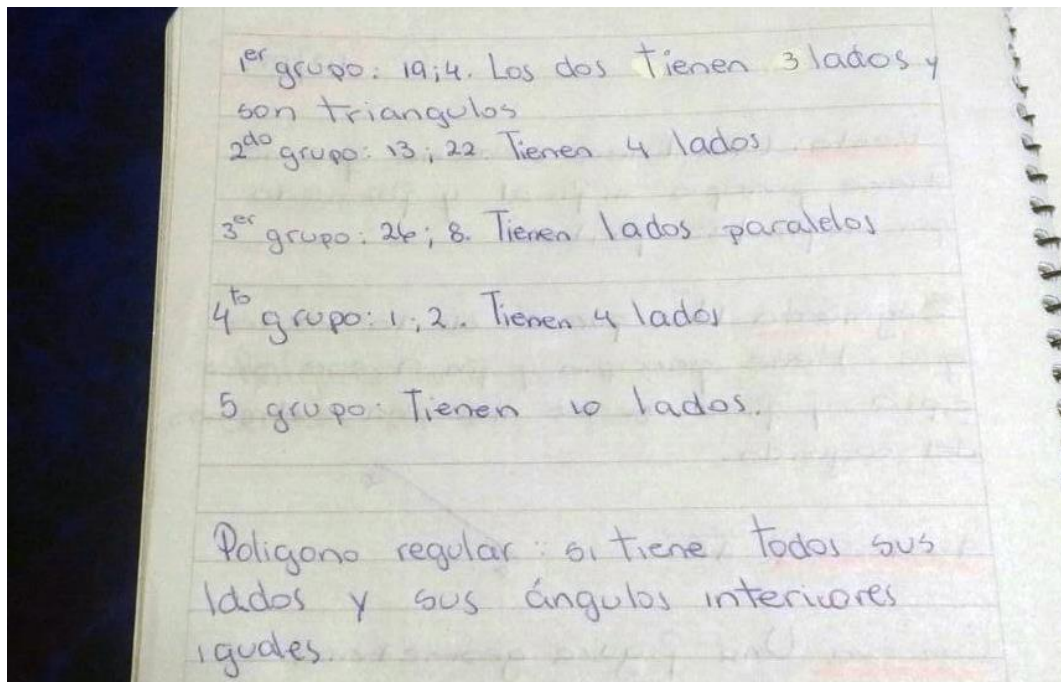 1er grupo: 19;4. Los dos Tienen 3 lados y
son triangulos
2do grupo: 13; 22. Tienen 4 lados
3er grupo: 26; 8. Tienen lados paralelos
4to grupo: 1; 2. Tienen 4 lados
5 grupo: Tienen 10 lados.
Poligono regular: si tiene todos sus
lados y sus ángulos interiores
iguales.